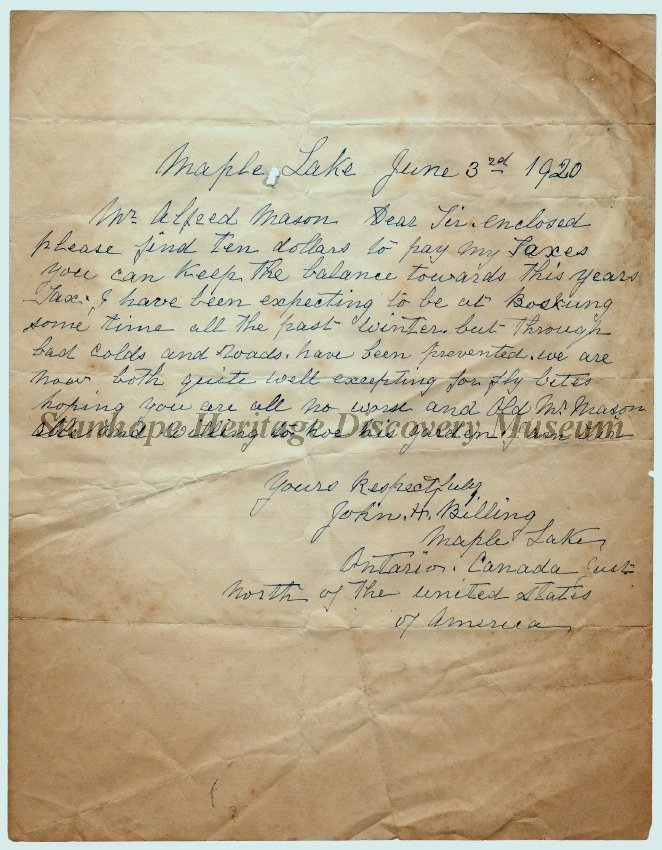 Maple Lake June 3rd 1920
Mr. Alfred Mason Dear Sir. enclosed
please find ten dollars to pay my Taxes
you can Keep the balance towards this years
Tax; I have been expecting to be at Boskung
some time all the past winter but through
bad colds and Roads. have been prevented. we are
now both quite well excepting for fly bites
hoping you are all no worse and Old Mr. Mason
able and willing to hoe his garden. I am Sir
Stanhope Heritage Discovery Museum
Yours Respectfuly
John. H. Billing
Maple Lake,
Ontario. Canada Just
North of the united states
of America,